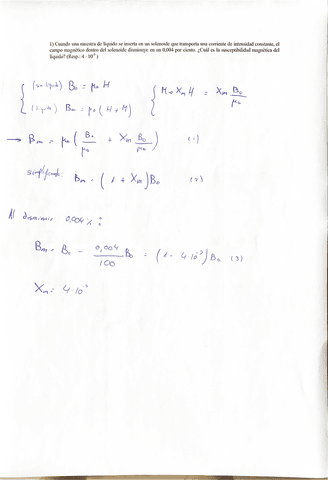 1) Cuando una muestra de líquido se inserta en un solenoide que transporta una corriente de intensidad constante, el
campo magnético dentro del solenoide disminuye en un 0,004 por ciento. ¿Cuál es la susceptibilidad magnética del
líquido? (Resp.: 4 · 10⁻⁵ )
(sin líquido) B₀ = μ₀ H
(líquido) Bₘ = μ₀ ( H + M )
M = Xₘ H = Xₘ B₀/μ₀
→ Bₘ = μ₀ ( B₀/μ₀ + Xₘ B₀/μ₀ ) (1)
simplificando Bₘ = ( 1 + Xₘ ) B₀ (2)
Al disminuir 0,004 % :
Bₘ = B₀ - 0,004/100 B₀ = ( 1 - 4·10⁻⁵ ) B₀ (3)
Xₘ = 4·10⁻⁵